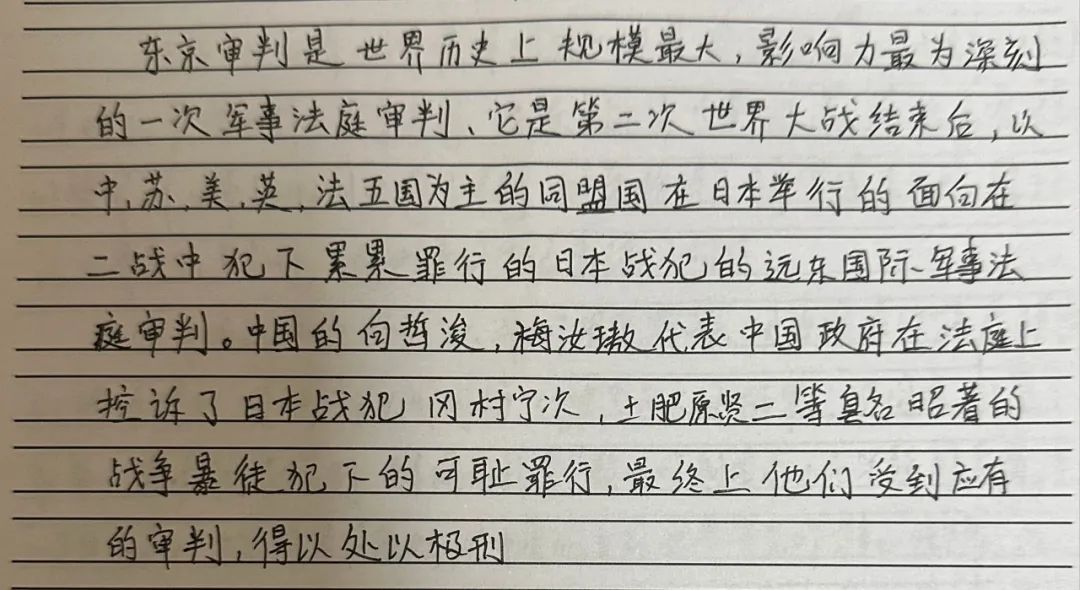 东京审判是世界历史上规模最大，影响力最为深刻
的一次军事法庭审判、它是第二次世界大战结束后，以
中、苏、美、英、法五国为主的同盟国在日本举行的面向在
二战中犯下累累罪行的日本战犯的远东国际军事法
庭审判。中国的向哲浚，梅汝璈代表中国政府在法庭上
控诉了日本战犯冈村宁次，土肥原贤二等臭名昭著的
战争暴徒犯下的可耻罪行，最终上他们受到应有
的审判，得以处以极刑